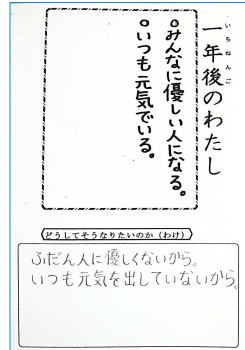 一年後のわたし
いちねんご
○みんなに優しい人になる。
○いつも元気でいる。
どうしてそうなりたいのか(わけ)
ふだん人に優しくないから。
いつも元気を出していないから。